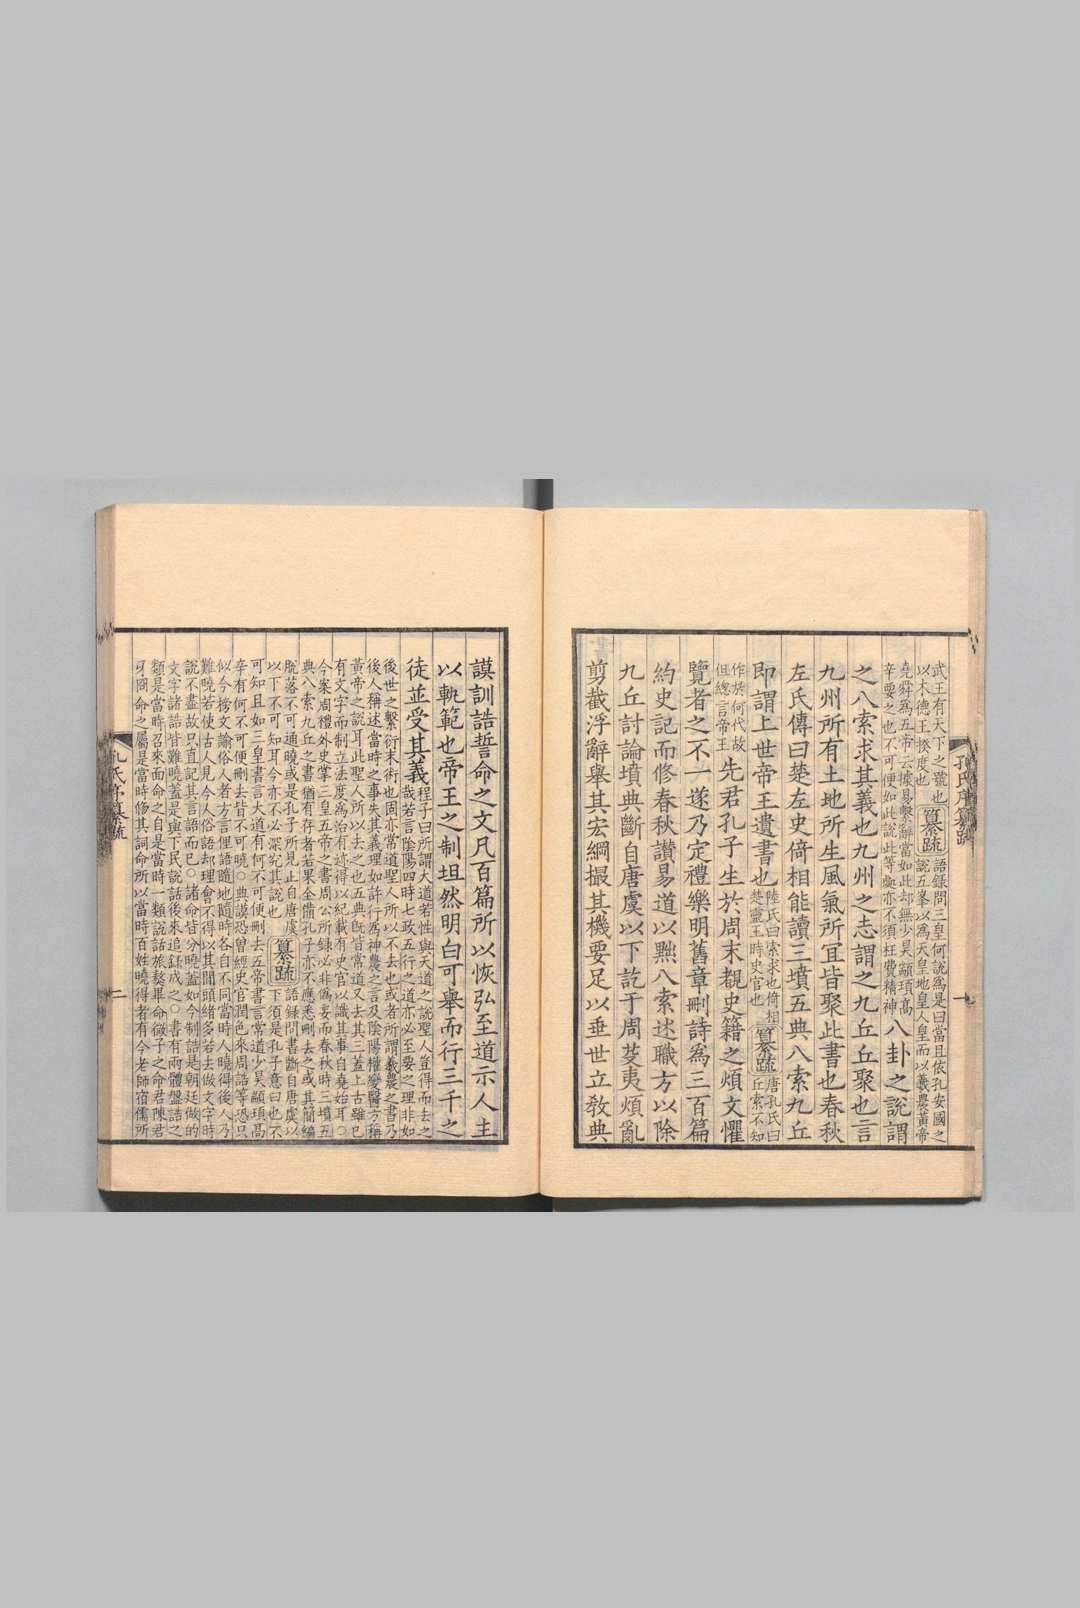 孔氏序纂疏
一
武王有天下之號也
以木德王揆度也
纂疏
語錄問三皇何說爲是曰當且依孔安國之
說五峯以爲天皇地皇人皇而以羲農黃帝
堯舜爲五帝云據易繫辭當如此却無少昊顓頊高
辛要之也不可便如此說此等處亦不須枉費精神
八卦之說謂
之八索求其義也九州之志謂之九丘丘聚也言
九州所有土地所生風氣所宜皆聚此書也春秋
左氏傳曰楚左史倚相能讀三墳五典八索九丘
即謂上世帝王遺書也
陸氏曰索求也倚相
楚靈王時史官也
纂疏
唐孔氏曰
丘索不知
作於何代故
但總言帝王
先君孔子生於周末覩史籍之煩文懼
覽者之不一遂乃定禮樂明舊章刪詩爲三百篇
約史記而修春秋讚易道以黜八索述職方以除
九丘討論墳典斷自唐虞以下訖于周芟夷煩亂
剪截浮辭舉其宏綱撮其機要足以垂世立教典
謨訓誥誓命之文凡百篇所以恢弘至道示人主
以軌範也帝王之制坦然明白可舉而行三千之
徒並受其義
程子曰所謂大道若性與天道之說聖人豈得而去之
哉若言陰陽四時七政五行之道亦必至要之理非如
後世之繁衍末術也固亦常道聖人所以不去也或者所謂羲農之書乃
後人稱述當時之事失其義理如許行爲神農之言及陰陽權變醫方稱
黃帝之說耳此聖人所以去之也五典旣皆常道又去其三蓋上古雖已
有文字而制立法度爲治有迹得以紀載有史官以識其事自堯始耳○
今案周禮外史掌三皇五帝之書周公所錄必非僞妄而春秋時三墳五
典八索九丘之書猶有存者若果全備孔子亦不應悉刪去之或其簡編
脫落不可通曉或是孔子所見止自唐虞
以下不可知耳今亦不必深究其說也
纂疏
語錄問書斷自唐虞以
下須是孔子意曰也不
可知且如三皇書言大道有何不可便刪去五帝書言常道少昊顓頊高
辛有何不可便刪去皆不可曉○典謨恐曾經史官潤色來周誥等恐只
似今榜文諭俗人者方言俚語隨地隨時各自不同當時人曉得後人乃
難曉若使古人見今人俗語却理會不得以其間頭緒多若去做文字時
說不盡故只直記其言語而已○諸命皆分曉蓋如今制誥是朝廷做的
文字諸誥皆難曉蓋是與下民說話後來追錄成之○書有兩體盤誥之
類是當時召來面命之自是當時一類說話旅獒畢命微子之命君陳君
牙冏命之屬是當時脩其詞命所以當時百姓曉得者有今老師宿儒所
孔氏序纂疏
二